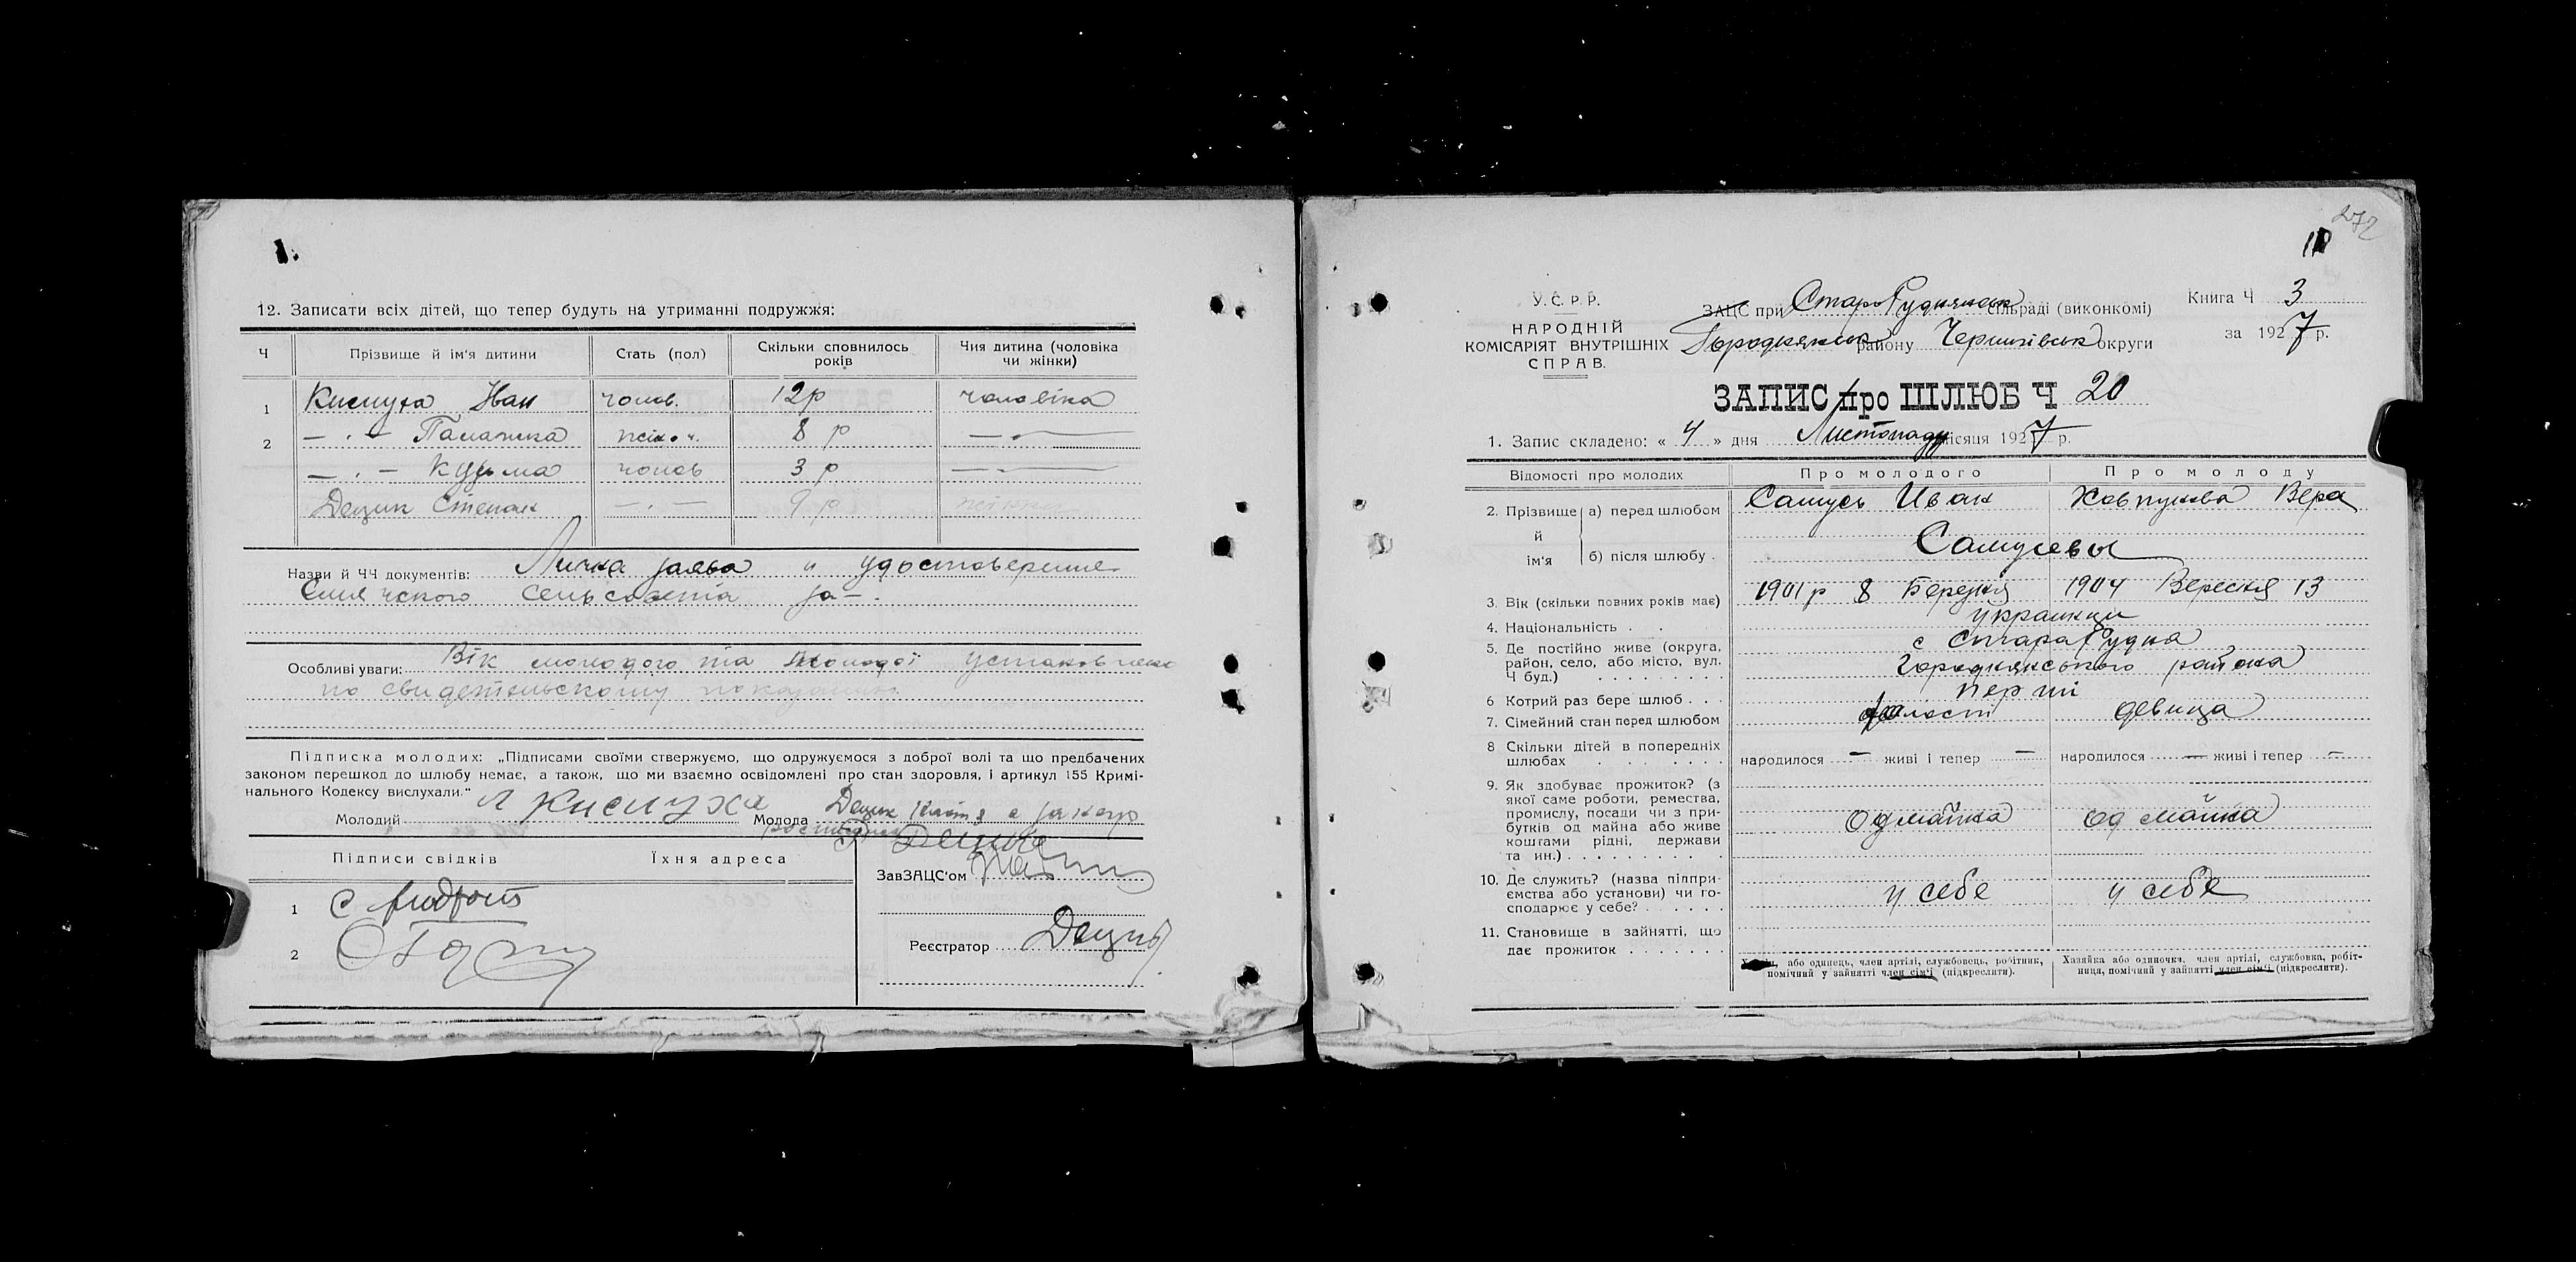 12. Записати всіх дітей, що тепер будуть на утриманні подружжя:
Ч Прізвище й ім'я дитини Стать (пол) Скільки сповнилось років Чия дитина (чоловіка чи жінки)
1 Кислуха Иван чолов. 12 р чоловіка
2 — · — Палажка жіноч. 8 р — · —
— · — Кузьма чолов 3 р — · —
Децик Степан — · — 9 р жінки
Назви й ЧЧ документів: Лична заява и удостоверение
сельсовета за — .
Особливі уваги: Вік молодого та молодої установлено
по свидетельскому показанию
Підписка молодих: „Підписами своїми стверджуємо, що одружуємося з доброї волі та що предбачених
законом перешкод до шлюбу немає, а також, що ми взаємно освідомлені про стан здоровля, і артикул 155 Кримі-
нального Кодексу вислухали."
Молодий Л Кислуха Молода Децик
Підписи свідків Їхня адреса
ЗавЗАЦС'ом
1
2
Реєстратор Децик
272
У.С.Р.Р.
НАРОДНІЙ
КОМІСАРІЯТ ВНУТРІШНІХ
СПРАВ.
ЗАЦС при Старо Руднянськ сільраді (виконкомі)
Городнянськ району Чернігівськ округи
Книга Ч 3
за 1927 р.
ЗАПИС про ШЛЮБ Ч 20
1. Запис складено: « 4 » дня Листопаду місяця 1927 р.
Відомості про молодих Про молодого Про молоду
2. Прізвище й ім'я а) перед шлюбом Самусь Иван Жовтунова Вера
б) після шлюбу . Самусевы
3. Вік (скільки повних років має) 1901 р 8 Березня 1904 Вересня 13
4. Національність . . украинци
5. Де постійно живе (округа, район, село, або місто, вул. Ч буд.) с Стара Рудня
Городнянського района
6 Котрий раз бере шлюб . . . перши
7. Сімейний стан перед шлюбом холост девица
8 Скільки дітей в попередніх шлюбах народилося — живі і тепер — народилося — живі і тепер —
9. Як здобуває прожиток? (з
якої саме роботи, ремества,
промислу, посади чи з при-
бутків од майна або живе
коштами рідні, держави
та ин.) од майна од майна
10. Де служить? (назва підпри-
ємства або установи) чи го-
сподарює у себе? у себе у себе
11. Становище в зайнятті, що
дає прожиток
або одинець, член артілі, службовець, робітник,
помічний у зайнятті член сім'ї (підкреслити).
Хазяйка або одиночка, член артілі, службовка, робіт-
ниця, помічний у зайнятті член сім'ї (підкреслити).